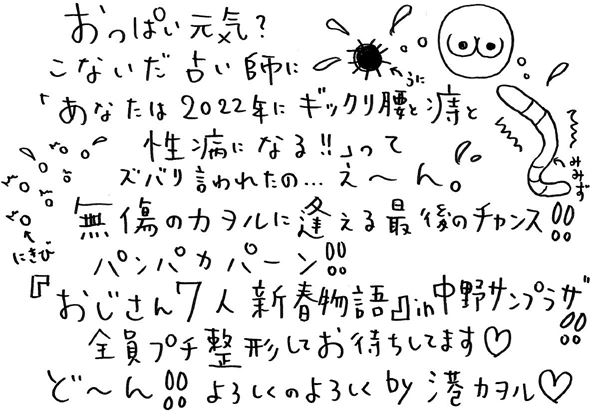 おっぱい元気?
こないだ占い師に
うに
「あなたは2022年にギックリ腰と痔と
性病になる!!」って
みみず
ズバリ言われたの…え〜ん。
無傷のカヲルに逢える最後のチャンス!!
にきび
パンパカパーン!!
『おじさん7人新春物語』in中野サンプラザ!!
全員プチ整形してお待ちしてます♡
ど〜ん!! よろしくのよろしく by 港カヲル♡